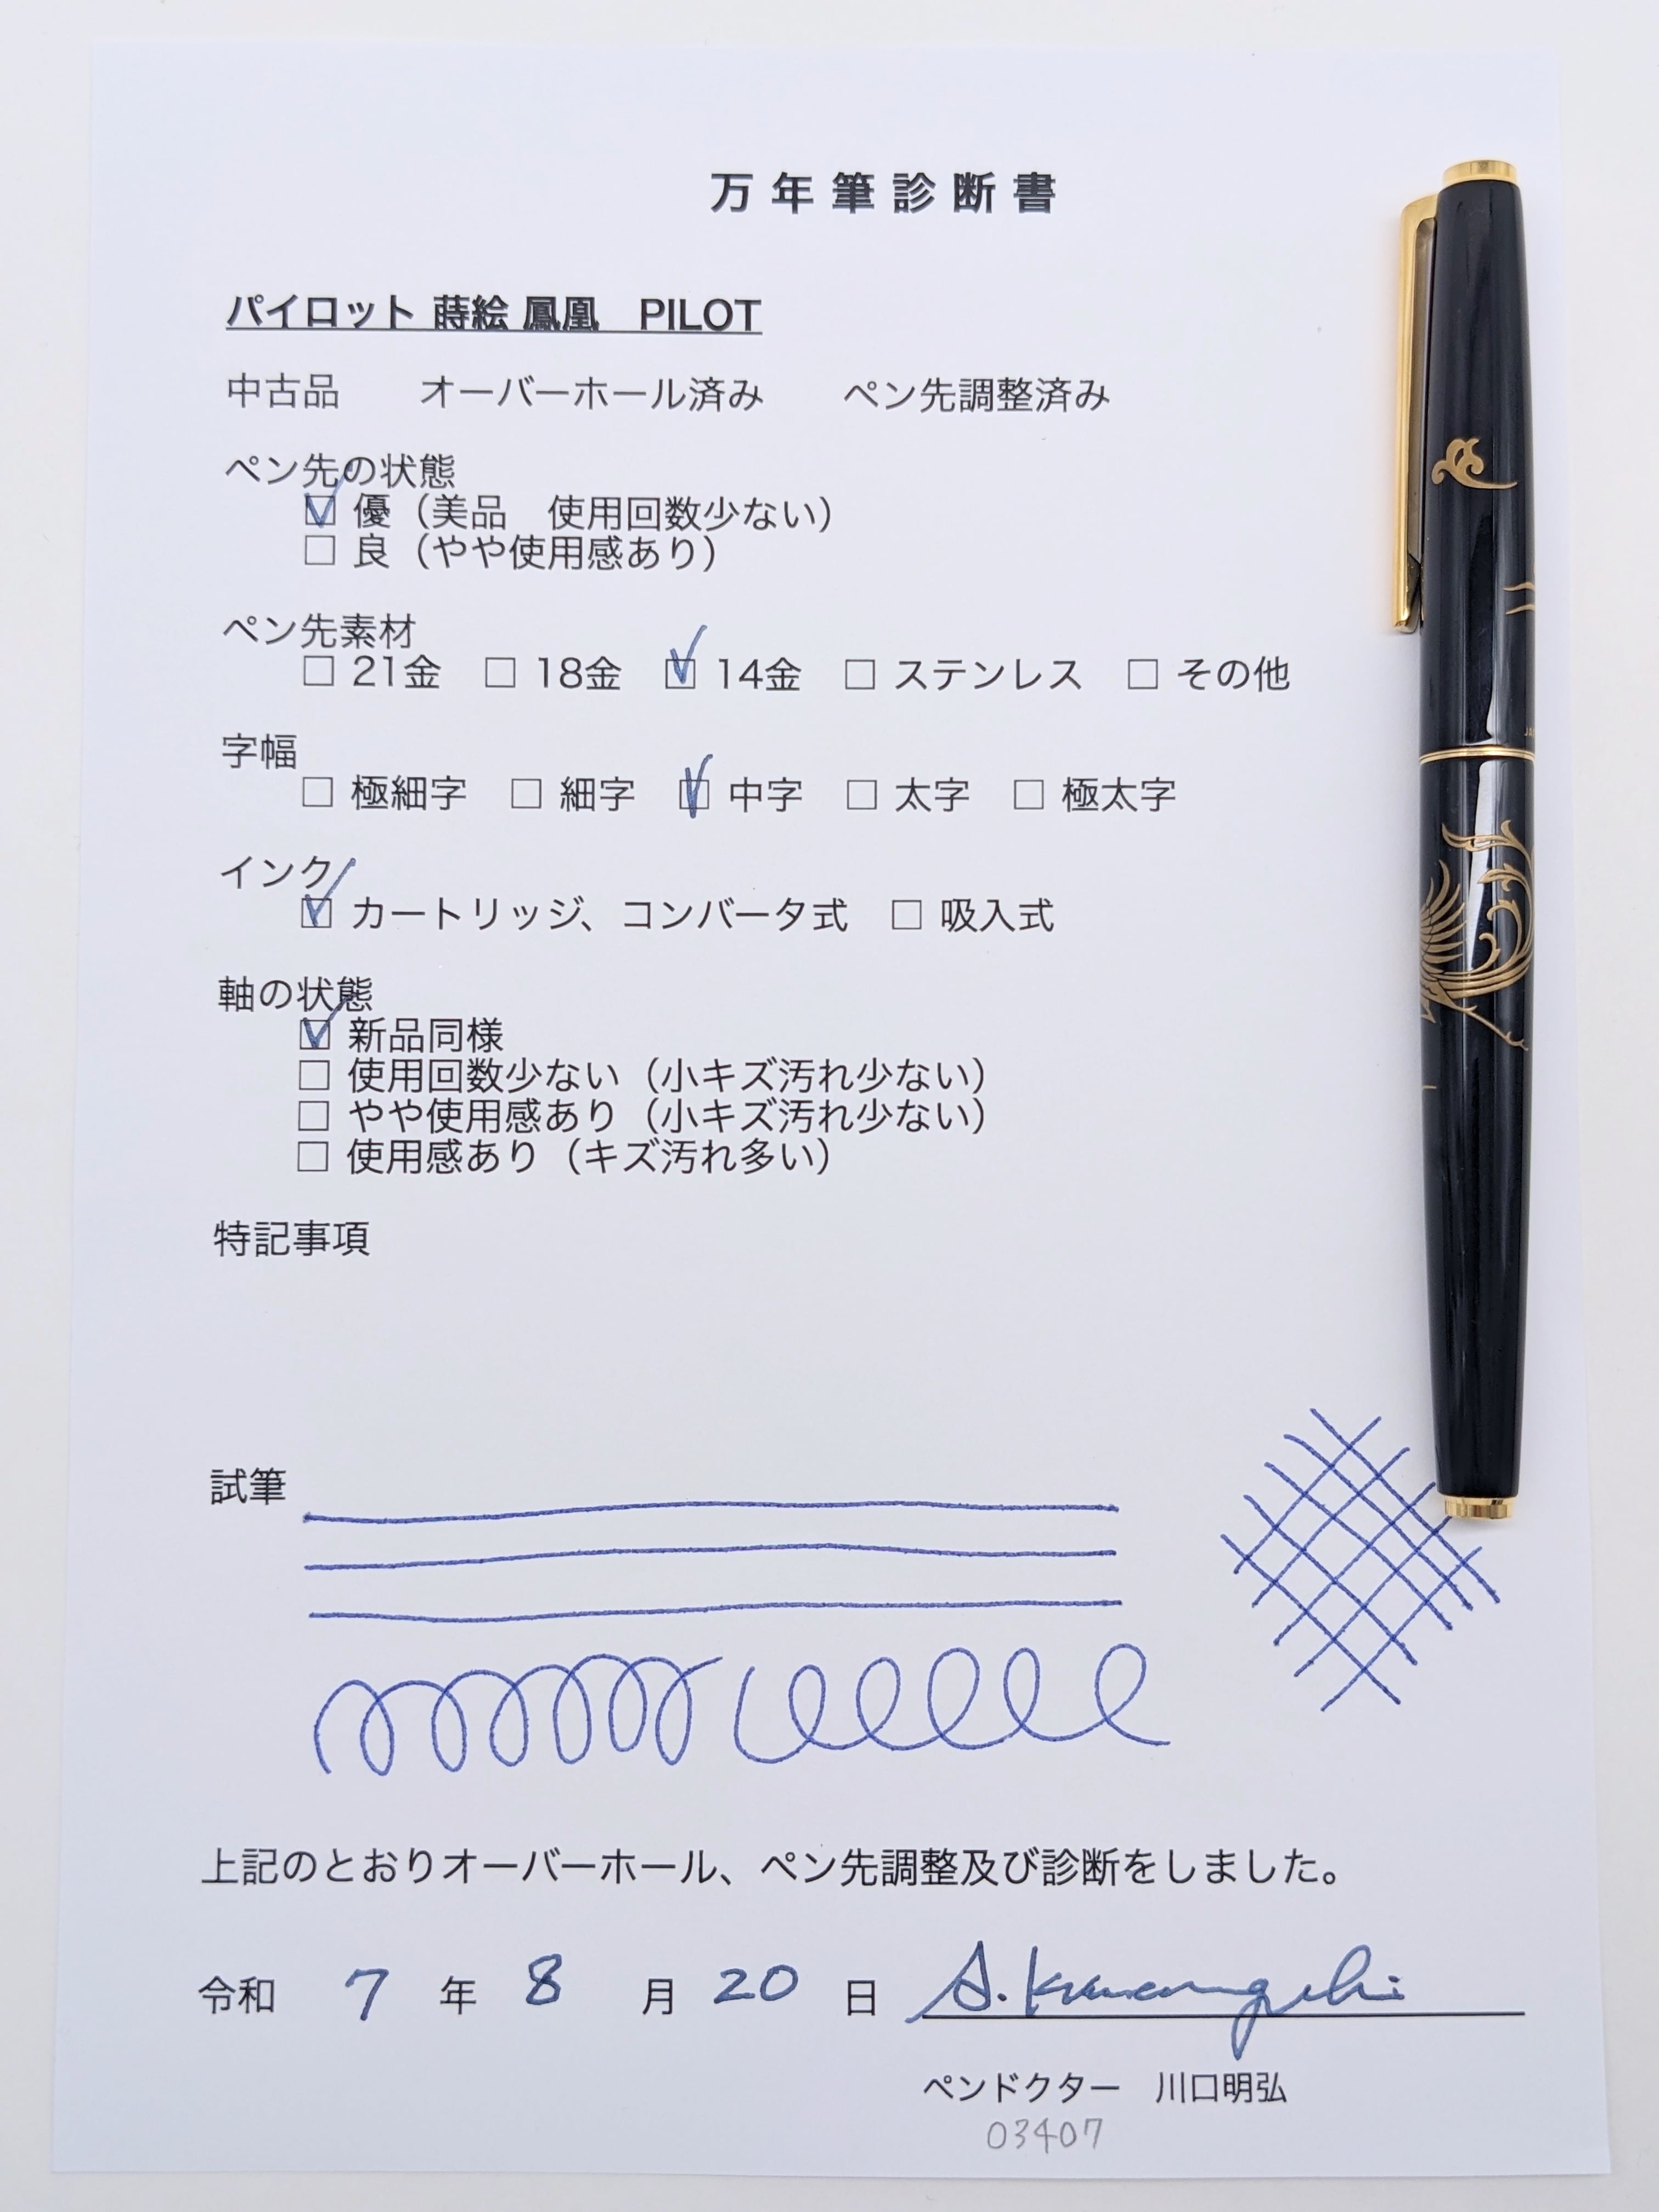 万年筆診断書
パイロット 蒔絵 鳳凰　PILOT
中古品　　オーバーホール済み　　ペン先調整済み
ペン先の状態
☑ 優（美品　使用回数少ない）
☐ 良（やや使用感あり）
ペン先素材
☐ 21金　☐ 18金　☑ 14金　☐ ステンレス　☐ その他
字幅
☐ 極細字　☐ 細字　☑ 中字　☐ 太字　☐ 極太字
インク
☑ カートリッジ、コンバータ式　☐ 吸入式
軸の状態
☑ 新品同様
☐ 使用回数少ない（小キズ汚れ少ない）
☐ やや使用感あり（小キズ汚れ少ない）
☐ 使用感あり（キズ汚れ多い）
特記事項
試筆
上記のとおりオーバーホール、ペン先調整及び診断をしました。
令和　7　年　8　月　20　日　A. Kawaguchi
ペンドクター　川口明弘
03407